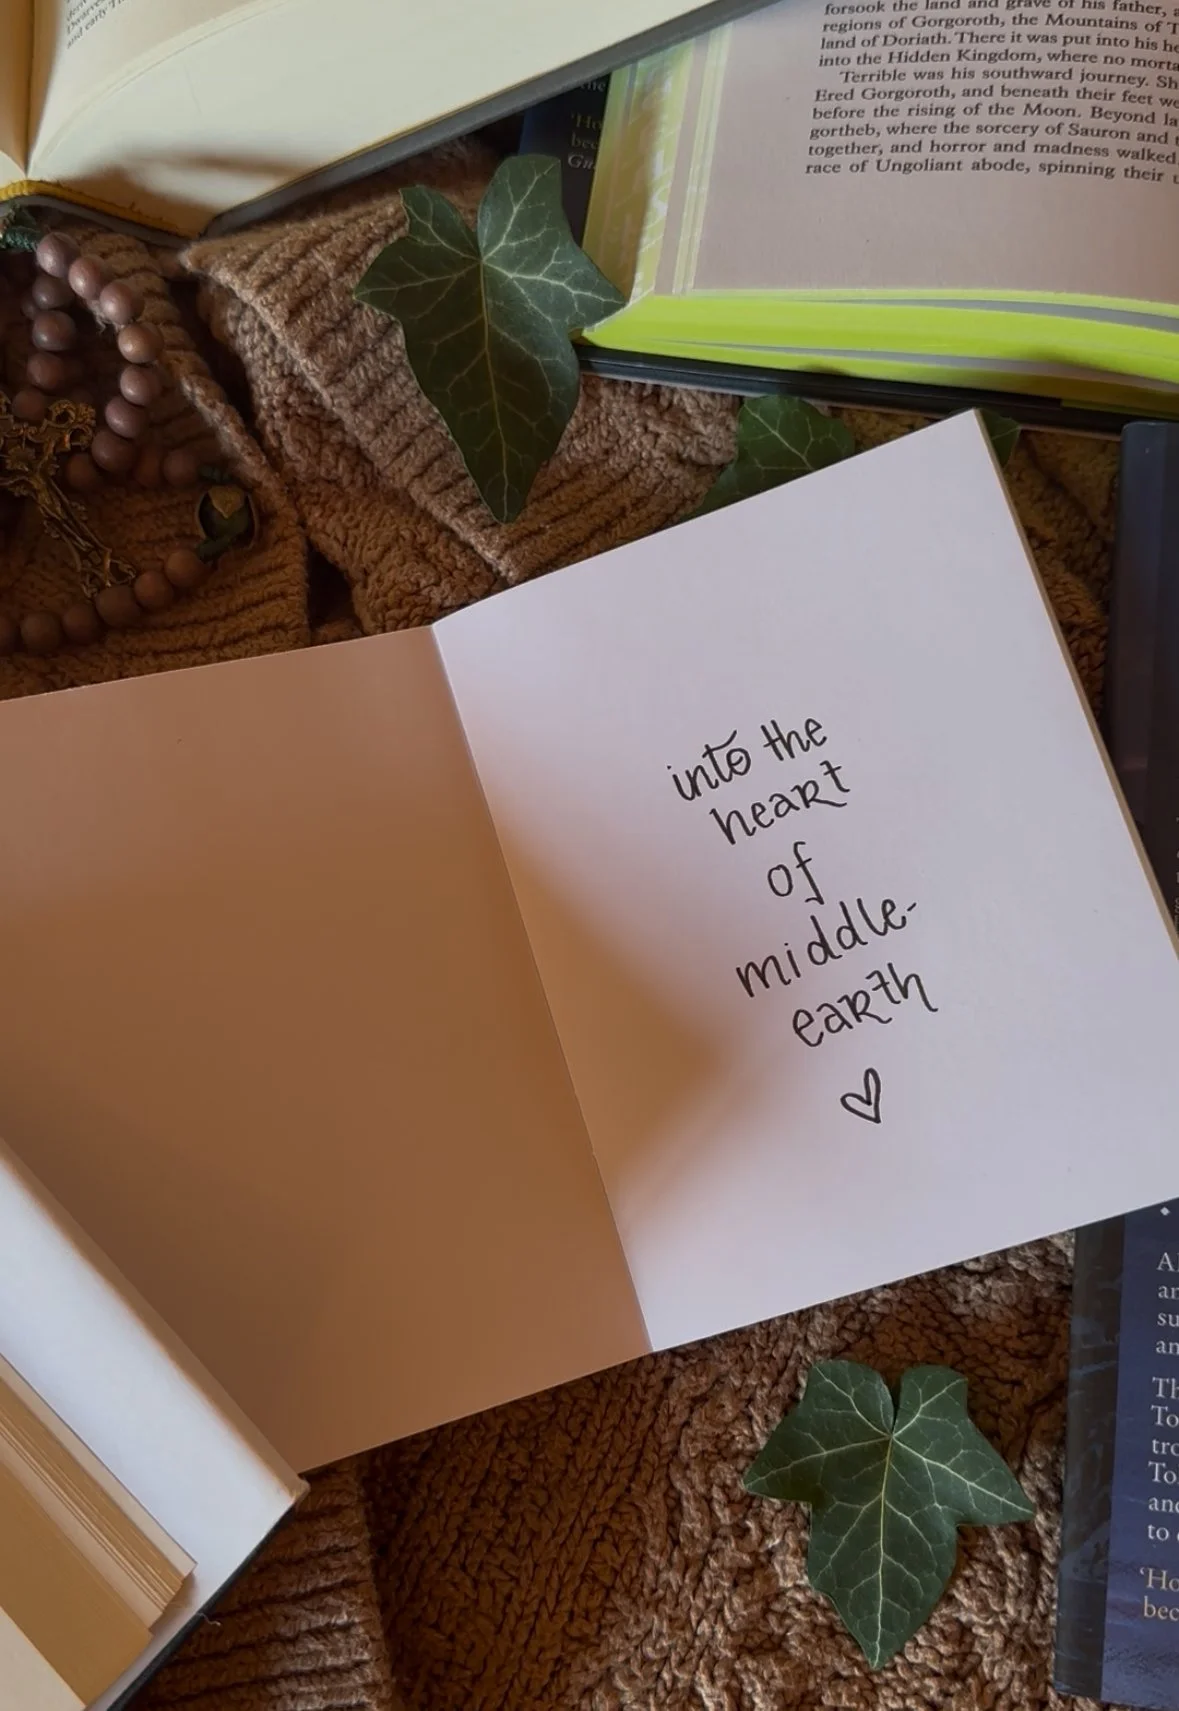 and early Th
forsook the land and grave of his father,
regions of Gorgoroth, the Mountains of T
land of Doriath. There it was put into his he
into the Hidden Kingdom, where no morta
Terrible was his southward journey. Sh
Ered Gorgoroth, and beneath their feet we
before the rising of the Moon. Beyond la
gortheb, where the sorcery of Sauron and
together, and horror and madness walked,
race of Ungoliant abode, spinning their u
'Ho
bec
Gu
into the
heart
of
middle-
earth
Al
an
su
an
Th
To
tro
To
and
to
'Ho
bec